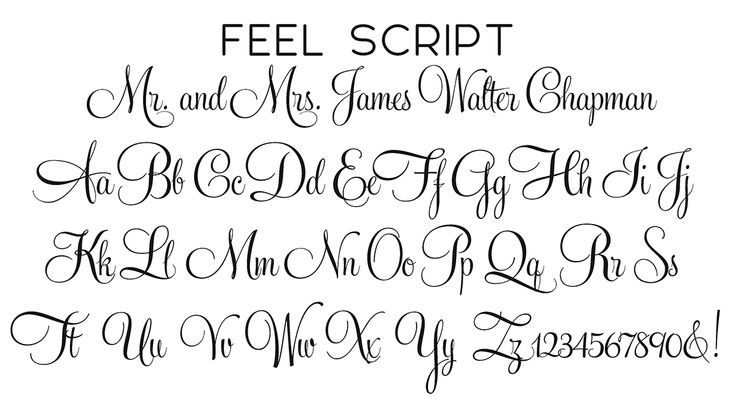 FEEL SCRIPT
Mr. and Mrs. James Walter Chapman
Aa Bb Cc Dd Ee Ff Gg Hh Ii Jj
Kk Ll Mm Nn Oo Pp Qq Rr Ss
Tt Uu Vv Ww Xx Yy Zz 1234567890&!